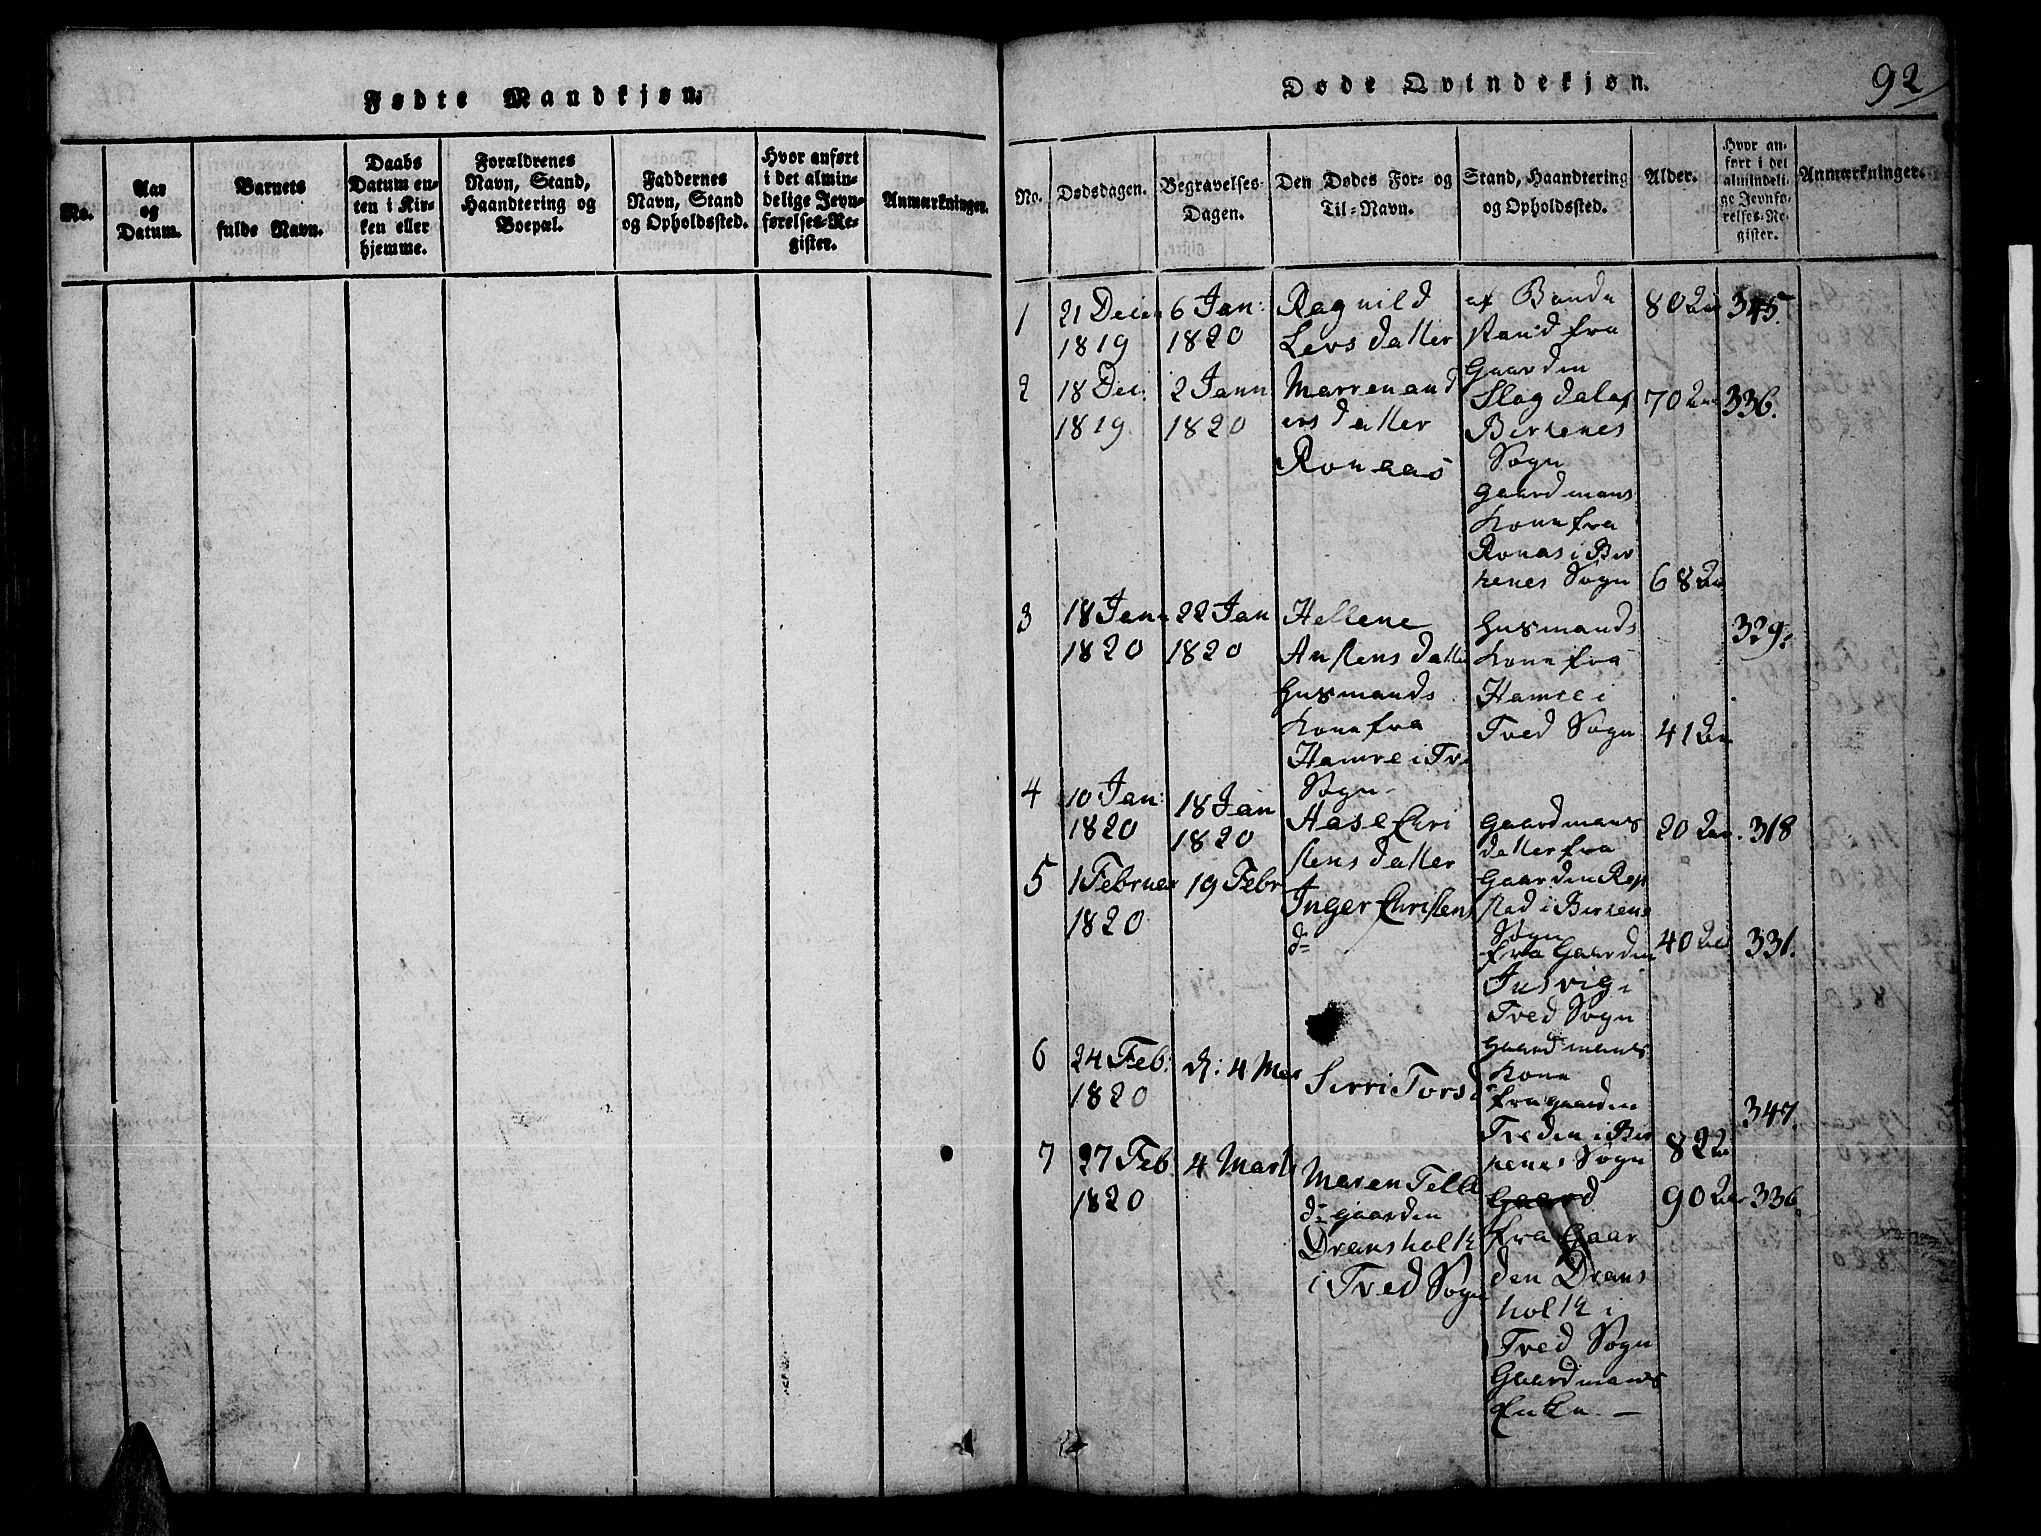 Fødte Mandkjøn.
No.
Aar
og
Datum.
Barnets
fulde Navn.
Daabs
Datum en-
ten i Kir-
ken eller
hjemme.
Forældrenes
Navn, Stand,
Haandtering og
Boepæl.
Faddernes
Navn, Stand
og Opholdssted.
Hvor anført
i det almin-
delige Jevn-
førelses-Re-
gister.
Anmærkninger.
Døde Qvindekjøn.
92
No.
Dødsdagen.
Begravelses-
Dagen.
Den Dødes For- og
Til-Navn.
Stand, Haandtering
og Opholdssted.
Alder.
Hvor an-
ført i det
almindeli-
ge Jevnfø-
relses-Re-
gister.
Anmærkninger.
1
21 Decem
1819
6 Jan:
1820
Ragnild
Lersdatter
af Bonde
stand fra
Gaarden
Slogdalaf
Birkenes
Sogn
80
345.
2
18 Dec:
1819
2 Jann
1820
Marren and
ersdatter
Ronaas
gaardmans
kone fra
Ronas i Bir
kenes Sogn
70
336.
68
3
18 Jan
1820
22 Jan
1820
Hellene
Anstensdatte
husmands
kone fra
Hamre i Tve
Sogn
husmands
kone fra
Hamre i
Tved Sogn
41
329.
4
10 Jan:
1820
18 Jan
1820
Aase Chri
stensdatter
gaardmans
datter fra
Gaarden Rep
stad i Birkene
Sogn
20
318
5
1 Februar
1820
19 Febr
Inger Christens
d=
fra Gaarden
Justvig i
Tved Sogn
gaardmans
kone
40
331.
6
24 Feb:
1820
d: 4 Mar
Sirri Torsd
fra gaarden
Tveden i Bir
kenes Sogn
82
347.
7
27 Feb
1820
4 Marts
Maren Telle
d= gaarden
Dransholtt
i Tved Sogn
Gaard
fra Gaar
den Drans
holtt i
Tved Sogn
Gaardmans
Enke. —
90
336.